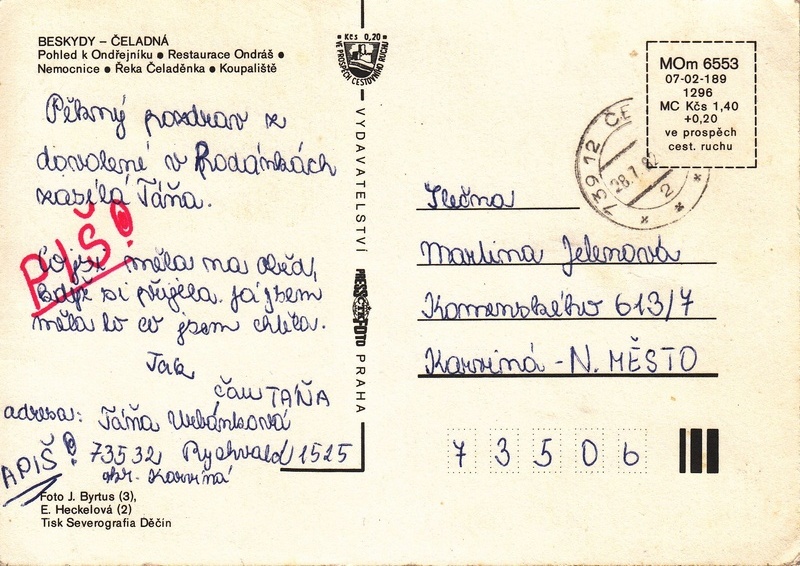 BESKYDY – ČELADNÁ
Pohled k Ondřejníku ● Restaurace Ondráš ●
Nemocnice ● Řeka Čeladěnka ● Koupaliště
Pěkný pozdrav z
dovolené v Prodánkách
zasílá Táňa.
PIŠ!
Co jsi měla na oběd,
když si přijela. Já jsem
měla to co jsem chtěla.
Tak
čau TÁŇA
adresa: Táňa Urbánková
73532 Rychvald 1525
okr. Karviná
APIŠ!
Foto J. Byrtus (3),
E. Heckelová (2)
Tisk Severografia Děčín
Kčs 0,20
VE PROSPĚCH CESTOVNÍHO RUCHU
VYDAVATELSTVÍ
PRESSFOTO
ČTK
PRAHA
MOm 6553
07-02-189
1296
MC Kčs 1,40
+0,20
ve prospěch
cest. ruchu
739 12 ČE
28.7.82
2
Slečna
Martina Jelenová
Komenského 613/7
Karviná - N. MĚSTO
73506